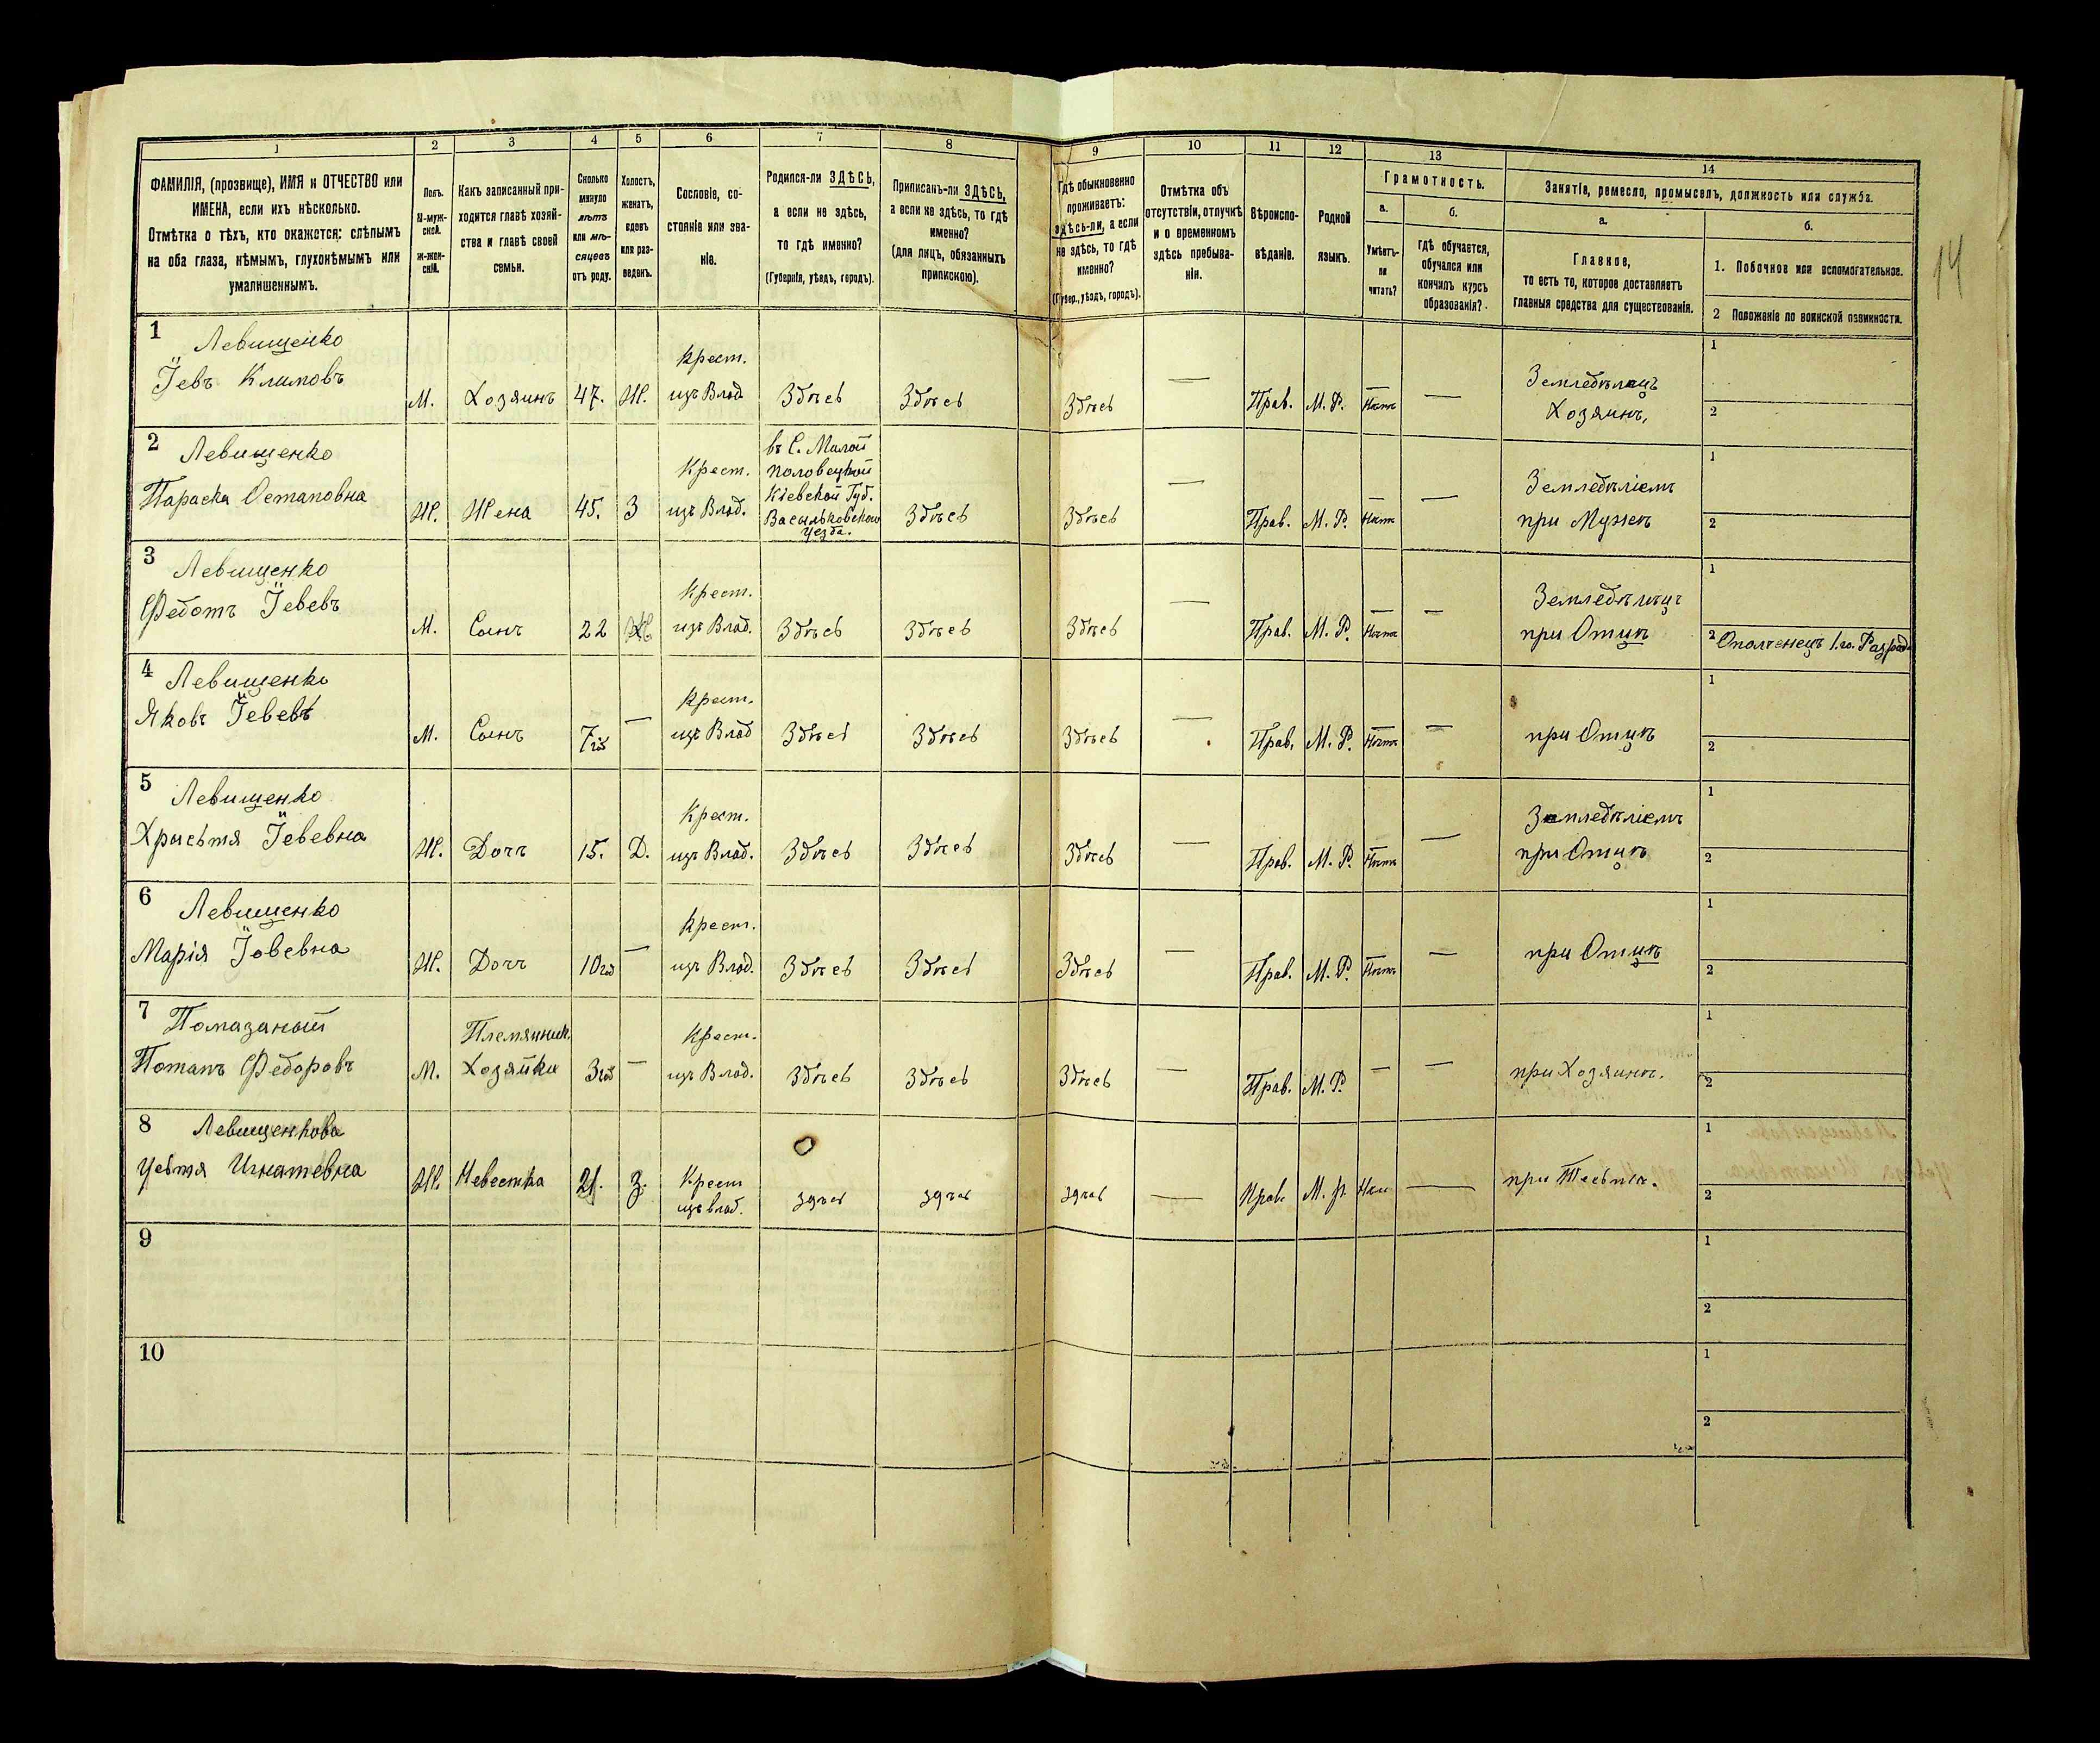 1 2 3 4 5 6 7 8 9 10 11 12 13 14
ФАМИЛІЯ, (прозвище), ИМЯ и ОТЧЕСТВО или
ИМЕНА, если ихъ нѣсколько.
Отмѣтка о тѣхъ, кто окажется: слѣпымъ
на оба глаза, нѣмымъ, глухонѣмымъ или
умалишеннымъ.
Полъ.
М-муж-
ской.
Ж-жен-
скій.
Какъ записанный при-
ходится главѣ хозяй-
ства и главѣ своей
семьи.
Сколько
минуло
лѣтъ
или мѣ-
сяцевъ
отъ роду.
Холостъ,
женатъ,
вдовъ
или раз-
веденъ.
Сословіе, со-
стояніе или зва-
ніе.
Родился-ли ЗДѢСЬ,
а если не здѣсь,
то гдѣ именно?
(Губернія, уѣздъ, городъ).
Приписанъ-ли ЗДѢСЬ,
а если не здѣсь, то гдѣ
именно?
(для лицъ, обязанныхъ
припискою).
Гдѣ обыкновенно
проживаетъ:
здѣсь-ли, а если
не здѣсь, то гдѣ
именно?
(Губер., уѣздъ, городъ).
Отмѣтка объ
отсутствіи, отлучкѣ
и о временномъ
здѣсь пребыва-
ніи.
Вѣроиспо-
вѣданіе.
Родной
языкъ.
Грамотность.
а.
Умѣетъ-
ли
читать?
б.
гдѣ обучается,
обучался или
кончилъ курсъ
образованія?
Занятіе, ремесло, промыселъ, должность или служба.
а.
Главное,
то есть то, которое доставляетъ
главныя средства для существованія.
б.
1. Побочное или вспомогательное.
2 Положеніе по воинской повинности.
14
1 Левищенко
Іевъ Климовъ
М. Хозяинъ 47. Ж.
Крест.
изъ Влад
Здѣсь Здѣсь Здѣсь — Прав. М. Р. Нѣтъ —
Земледѣлецъ
Хозяинъ,
1
2
2 Левищенко
Параска Остаповна
Ж. Жена 45. З
Крест.
изъ Влад.
въ С. Малой
Половецкой
Кіевской Губ.
Васильковского
Уезда.
Здѣсь Здѣсь — Прав. М. Р. Нѣтъ —
Земледѣліемъ
при Мужѣ
1
2
3 Левищенко
Федотъ Іевевъ
М. Сынъ 22
Крест.
изъ Влад.
Здѣсь Здѣсь Здѣсь — Прав. М. Р. Нѣтъ —
Земледѣлецъ
при Отцѣ
1
2 Ополченецъ 1.го. Разряда
4 Левищенко
Яковъ Іевевъ
М. Сынъ 7 —
Крест.
изъ Влад
Здѣсь Здѣсь Здѣсь — Прав. М. Р. Нѣтъ —
при Отцѣ
1
2
5 Левищенко
Хрысьтя Іевевна
Ж. Дочъ 15. Д.
Крест.
изъ Влад.
Здѣсь Здѣсь Здѣсь — Прав. М. Р. Нѣтъ —
Земледѣліемъ
при Отцѣ
1
2
6 Левищенко
Марія Іовевна
Ж. Дочъ 10 —
Крест.
изъ Влад.
Здѣсь Здѣсь Здѣсь — Прав. М. Р. Нѣтъ —
при Отцѣ
1
2
7 Помазаной
Потапъ Федоровъ
М.
Племянник.
Хозяйки
3 —
Крест.
изъ Влад.
Здѣсь Здѣсь Здѣсь — Прав. М. Р. — —
при Хозяинѣ.
1
2
8 Левищенкова
Усьтя Игнатевна
Ж. Невестка 21. З.
Крест
изъ влад.
здѣсь здѣсь здѣсь — Прав. М. р. —
при Тесьтѣ.
1
2
9
1
2
10
1
2